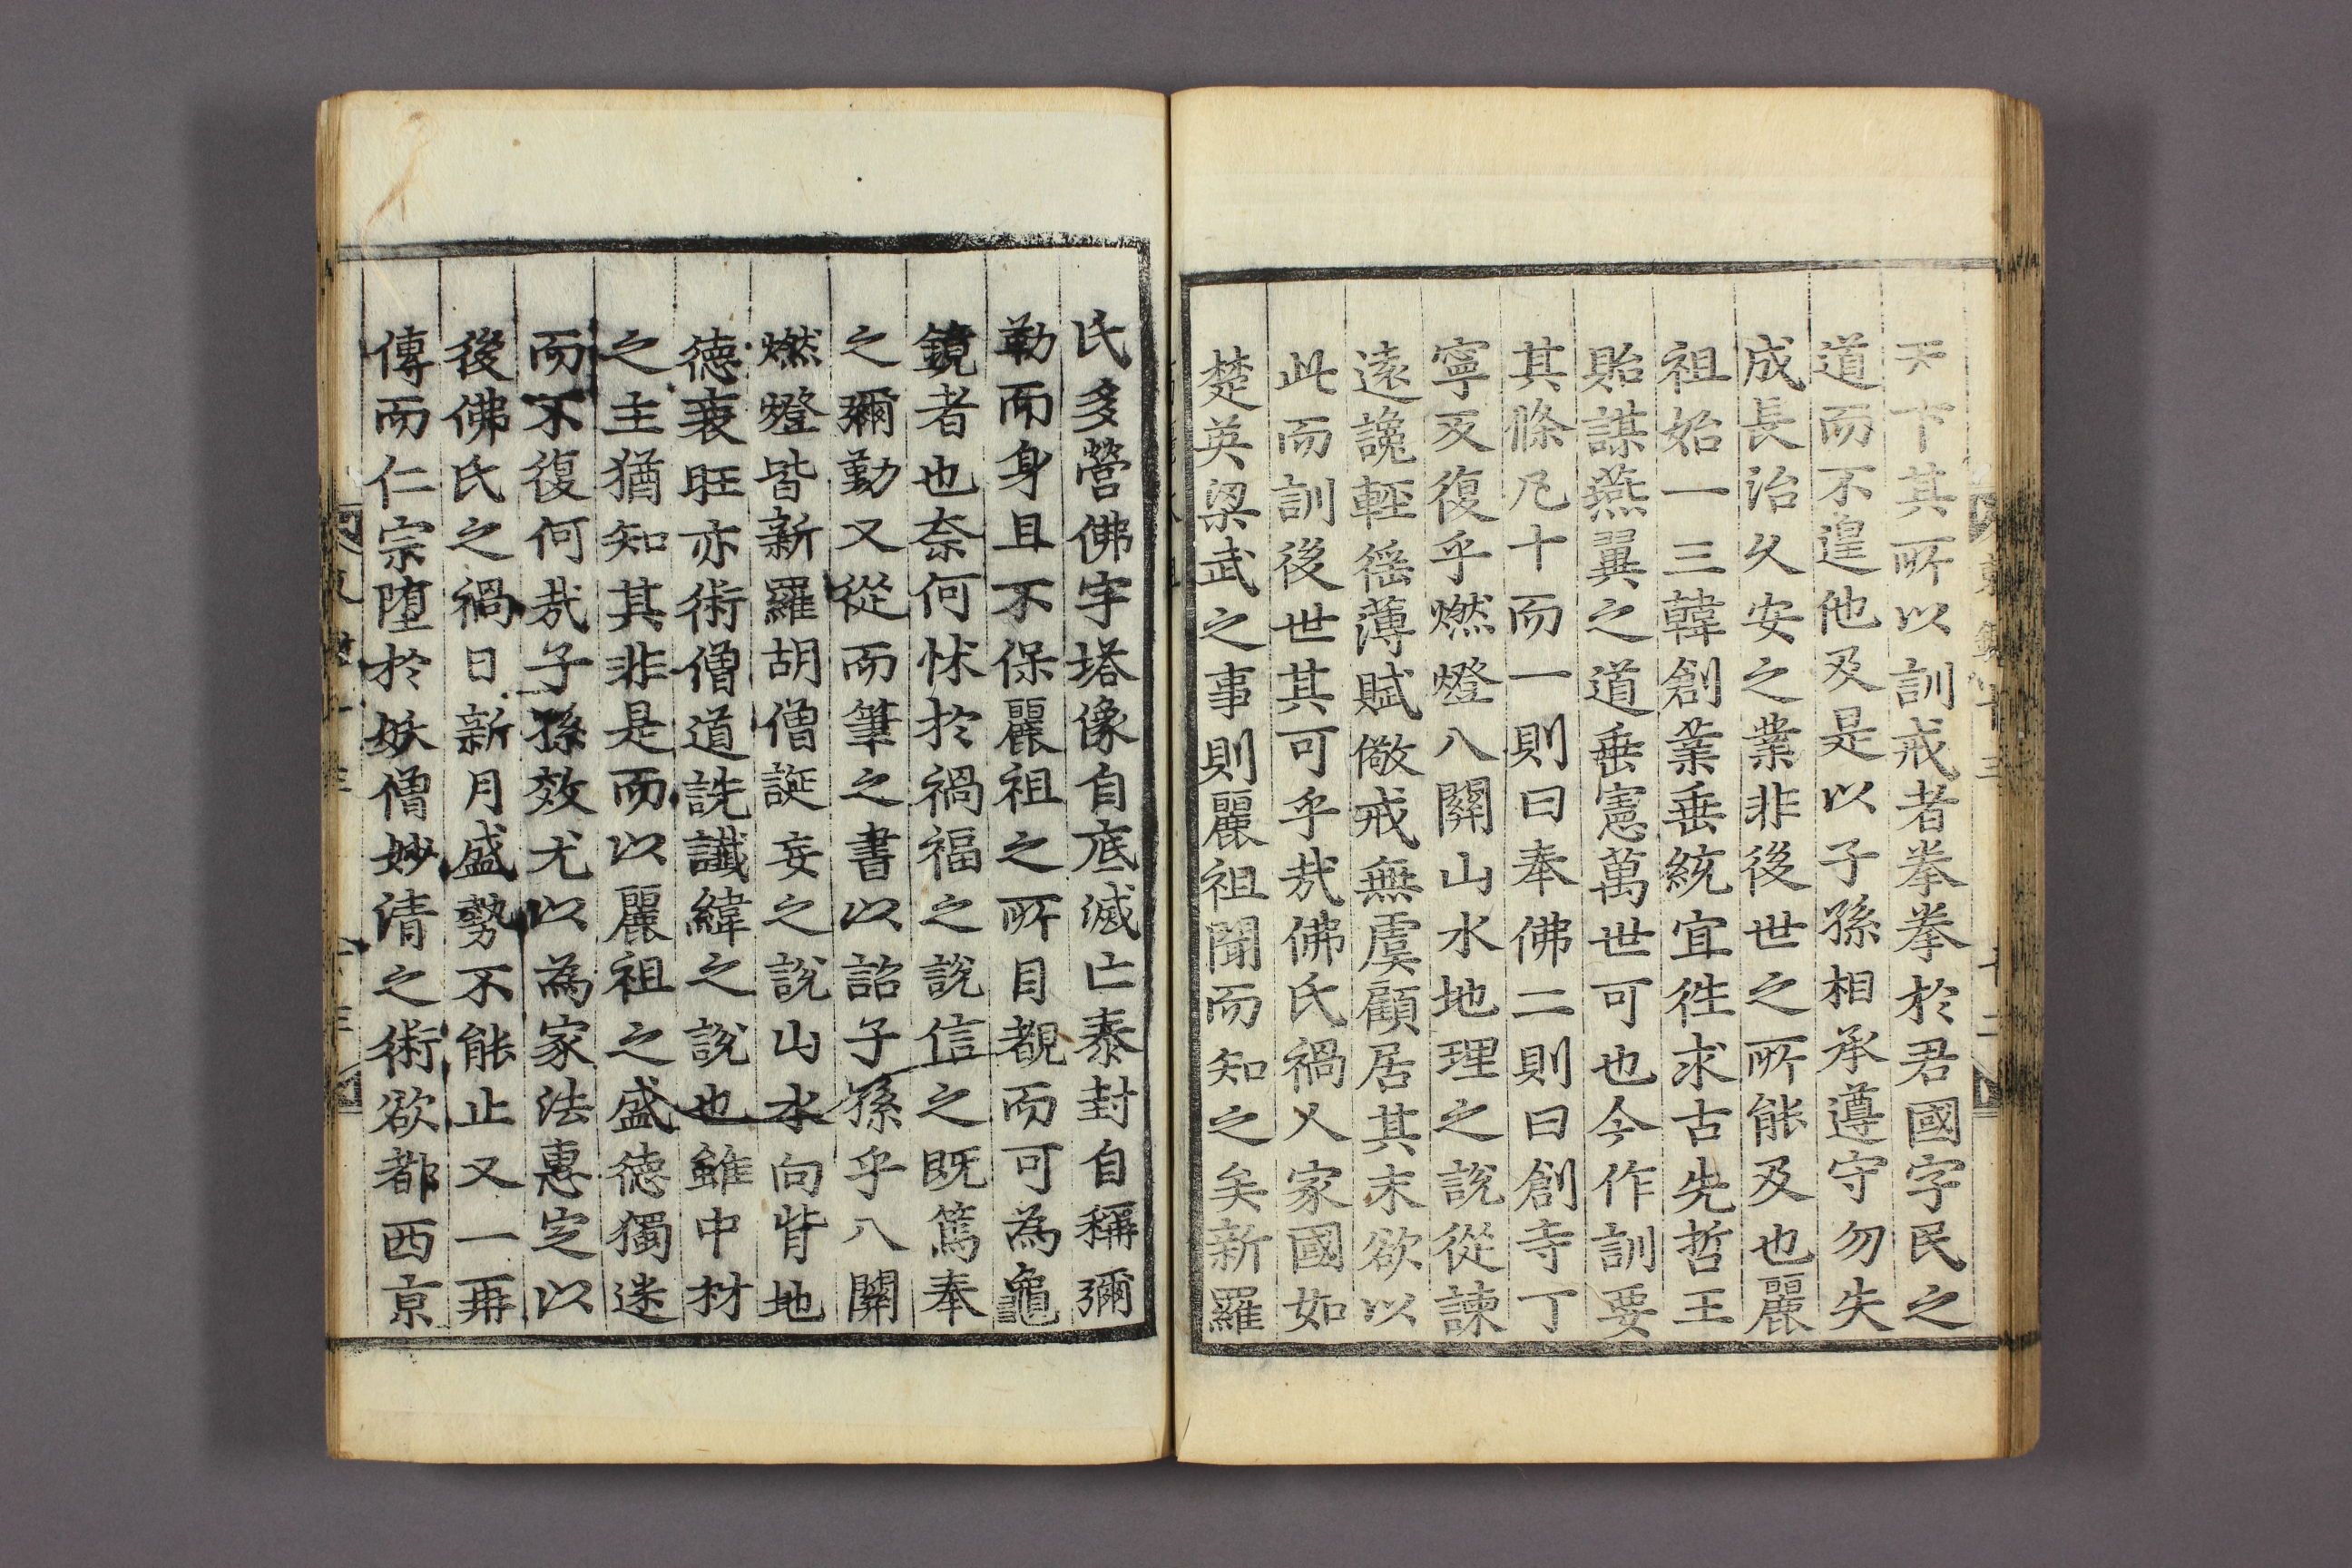 天下其所以訓戒者拳拳於君國字民之
道而不遑他及是以子孫相承遵守勿失
成長治久安之業非後世之所能及也麗
祖始一三韓創業垂統宜徃求古先哲王
貽謀燕翼之道垂憲萬世可也今作訓要
其條凡十而一則曰奉佛二則曰創寺丁
寧反復乎燃燈八關山水地理之說從諫
遠讒輕徭薄賦儆戒無虞顧居其末欲以
此而訓後世其可乎㦲佛氏禍人家國如
楚英梁武之事則麗祖聞而知之矣新羅
氏多營佛宇塔像自底滅亡泰封自稱彌
勒而身且不保麗祖之所目覩而可為龜
鏡者也奈何怵於禍福之說信之既篤奉
之彌勤又從而筆之書以詔子孫乎八關
燃燈皆新羅胡僧誕妄之說山水向背地
德衰旺亦術僧道詵讖緯之說也雖中材
之主猶知其非是而以麗祖之盛德獨迷
而不復何㦲子孫效尤以為家法惠定以
後佛氏之禍日新月盛勢不能止又一再
傳而仁宗墮於妖僧妙清之術欲都西京